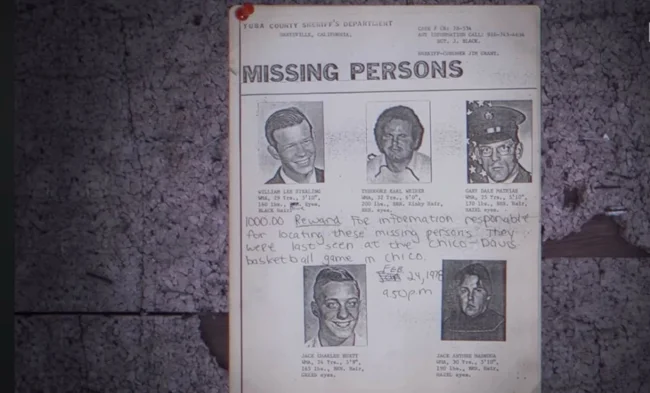 YUBA COUNTY SHERIFF'S DEPARTMENT
MARYSVILLE, CALIFORNIA.
FOR INFORMATION CALL:
SGT. J. BLACK.
SHERIFF-CORONER JIM GRANT.
MISSING PERSONS
WILLIAM LEE STERLING
WMA, 29 Yrs., 5'10",
lbs., eyes,
BLACK Hair
THEODORE EARL WEIHER
WMA, 32 Yrs.,
200 lbs., BRN. Kinky Hair,
BRN. eyes.
GARY DALE MATHIAS
WMA, 25 Yrs., 5'10",
170 lbs., BRN. Hair,
HAZEL eyes.
1000.00 Reward for information responsable
for locating these missing persons. They
were last seen at the Chico-Davis
basketball game in Chico.
FEB
24, 1978
950 p.m
JACK CHARLES HUETT
WMA, 24 Yrs., 5'9",
160 lbs., BRN. Hair,
GREEN eyes.
JACK ANTONE MADRUGA
WMA, 30 Yrs.,
190 lbs., BRN. Hair,
HAZEL eyes.